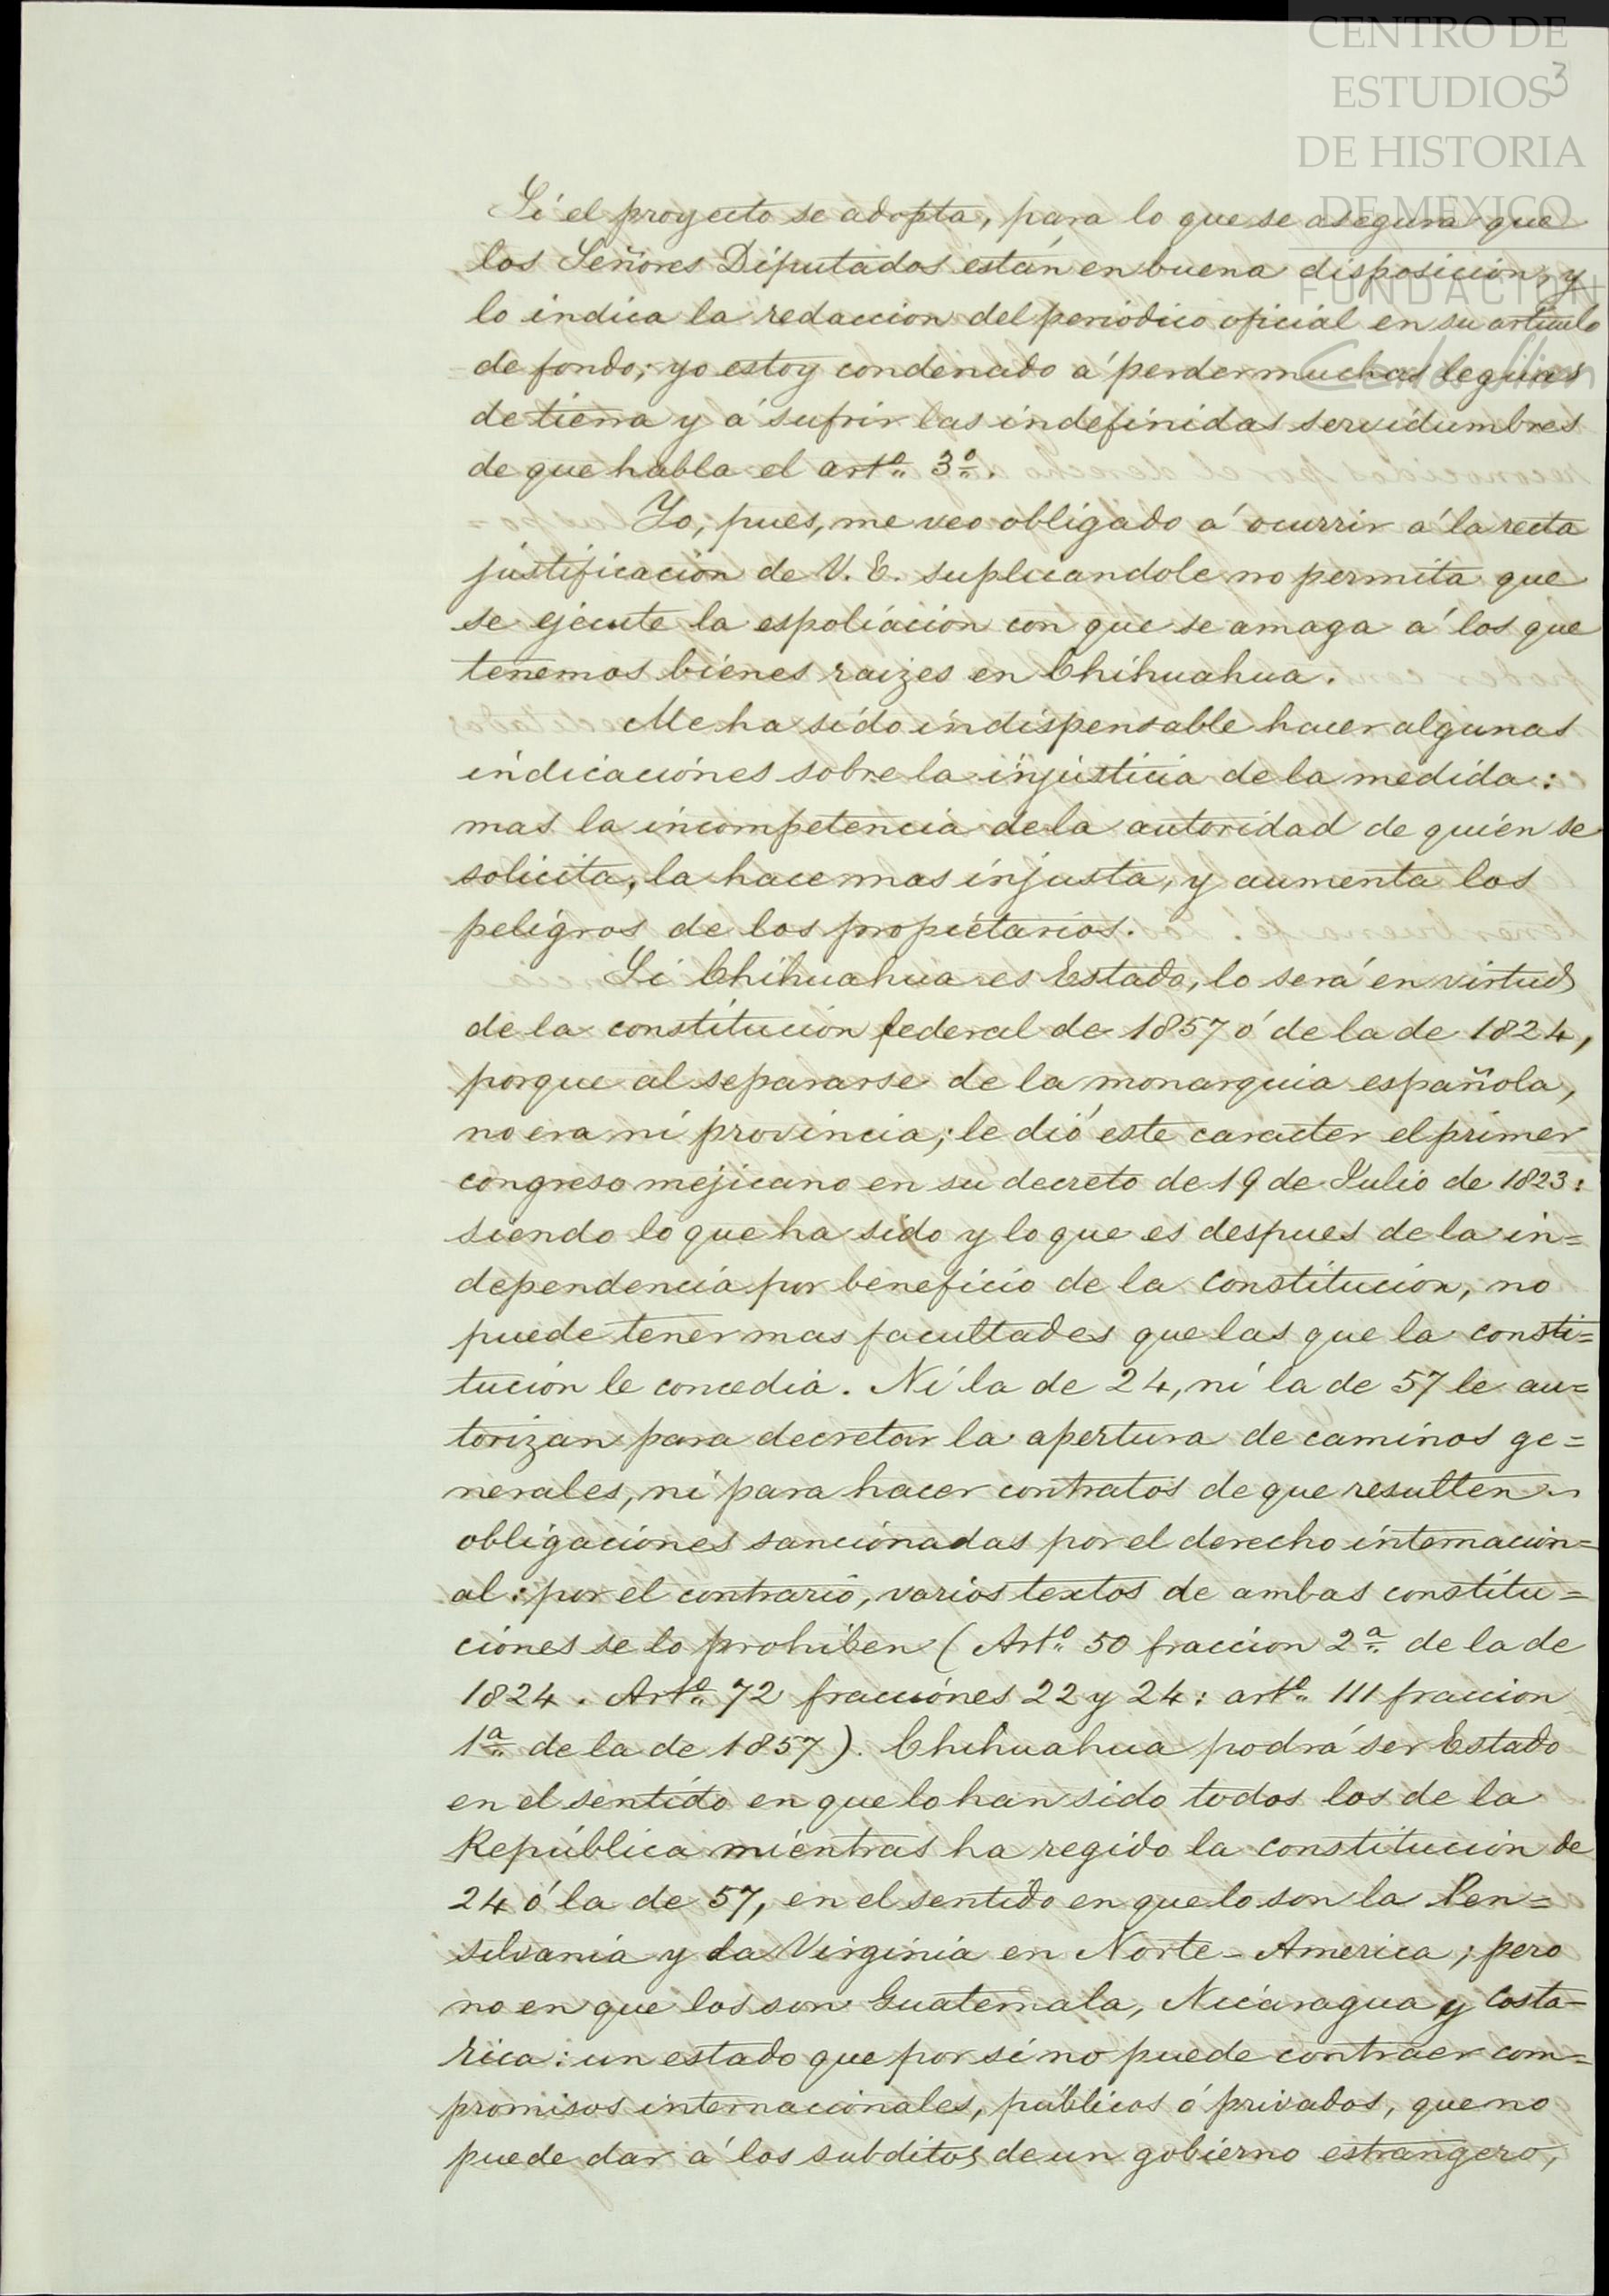 CENTRO DE
ESTUDIOS
3
DE HISTORIA
DE MEXICO
FUNDACIÓN
Si el proyecto se adopta, para lo que se asegura que
los Señores Diputados están en buena disposicion, y
lo indica la redaccion del periódico oficial en su artículo
de fondo; yo estoy condenado á perder muchas leguas
de tierra y á sufrir las indefinidas servidumbres
de que habla el artº 3º.
Yo, pues, me veo obligado á ocurrir á la recta
justificación de V. E. suplicandole no permita que
se ejecute la espoliación con que se amaga á los que
tenemos bienes raizes en Chihuahua.
Me ha sido indispensable hacer algunas
indicaciones sobre la injusticia de la medida:
mas la incompetencia de la autoridad de quien se
solicita, la hace mas injusta, y aumenta los
peligros de los propietarios.
Si Chihuahua es Estado, lo será en virtud
de la constitución federal de 1857 ó de la de 1824,
porque al separarse de la monarquia española,
no era ni provincia; le dió este caracter el primer
congreso mejicano en su decreto de 19 de Julio de 1823:
siendo lo que ha sido y lo que es despues de la in=
dependencia por beneficio de la constitución, no
puede tener mas facultades que las que la consti=
tución le concedia. Ni la de 24, ni la de 57 le au=
torizan para decretar la apertura de caminos ge=
nerales, ni para hacer contratos de que resulten
obligaciones sancionadas por el derecho internacion=
al: por el contrario, varios textos de ambas constitu=
ciones se lo prohiben (Artº 50 fraccion 2ª de la de
1824. Artº 72 fracciónes 22 y 24: artº 111 fraccion
1ª de la de 1857). Chihuahua podrá ser Estado
en el sentido en que lo han sido todos los de la
República mientras ha regido la constitución de
24 ó la de 57, en el sentido en que lo son la Pen=
silvania y la Virginia en Norte-America; pero
no en que los son Guatemala, Nicaragua y Costa-
rica: un estado que por si no puede contraer com=
promisos internacionales, públicos ó privados, que no
puede dar á los subditos de un gobierno estrangero,